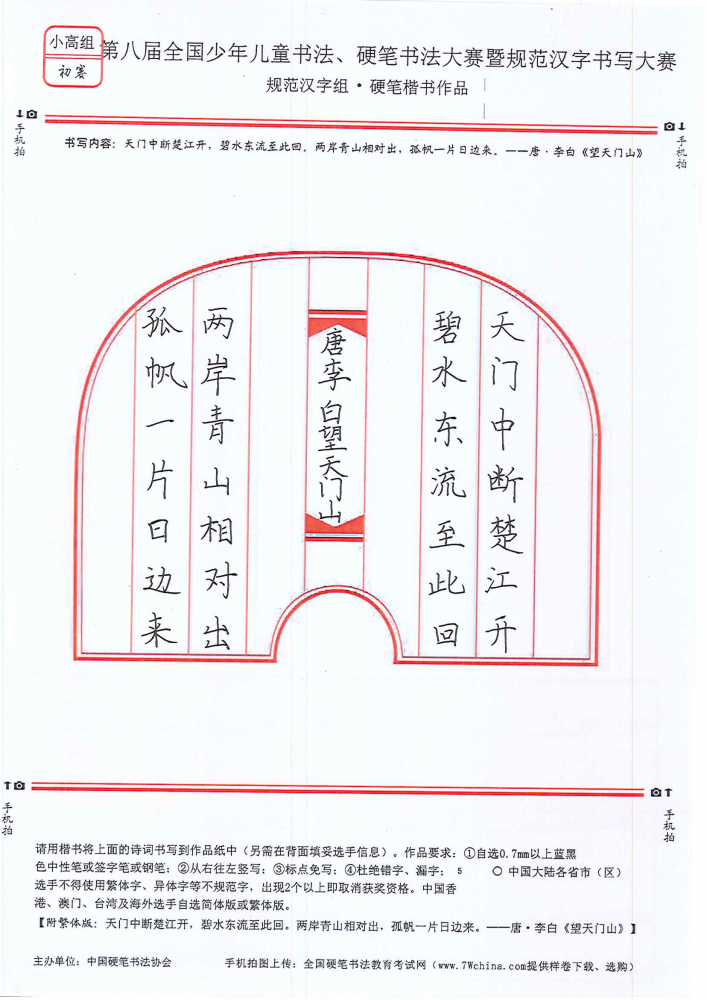 小高组
初赛
第八届全国少年儿童书法、硬笔书法大赛暨规范汉字书写大赛
规范汉字组·硬笔楷书作品
手机拍
手机拍
书写内容：天门中断楚江开，碧水东流至此回。两岸青山相对出，孤帆一片日边来。——唐·李白《望天门山》
天门中断楚江开
碧水东流至此回
唐李白望天门山
两岸青山相对出
孤帆一片日边来
手机拍
手机拍
请用楷书将上面的诗词书写到作品纸中（另需在背面填妥选手信息）。作品要求：①自选0.7mm以上蓝黑
色中性笔或签字笔或钢笔；②从右往左竖写；③标点免写；④杜绝错字、漏字； 5 〇 中国大陆各省市（区）
选手不得使用繁体字、异体字等不规范字，出现2个以上即取消获奖资格。中国香
港、澳门、台湾及海外选手自选简体版或繁体版。
【附繁体版：天门中断楚江开，碧水东流至此回。两岸青山相对出，孤帆一片日边来。——唐·李白《望天门山》】
主办单位：中国硬笔书法协会 手机拍图上传：全国硬笔书法教育考试网（www.7Wchina.com提供样卷下载、选购）